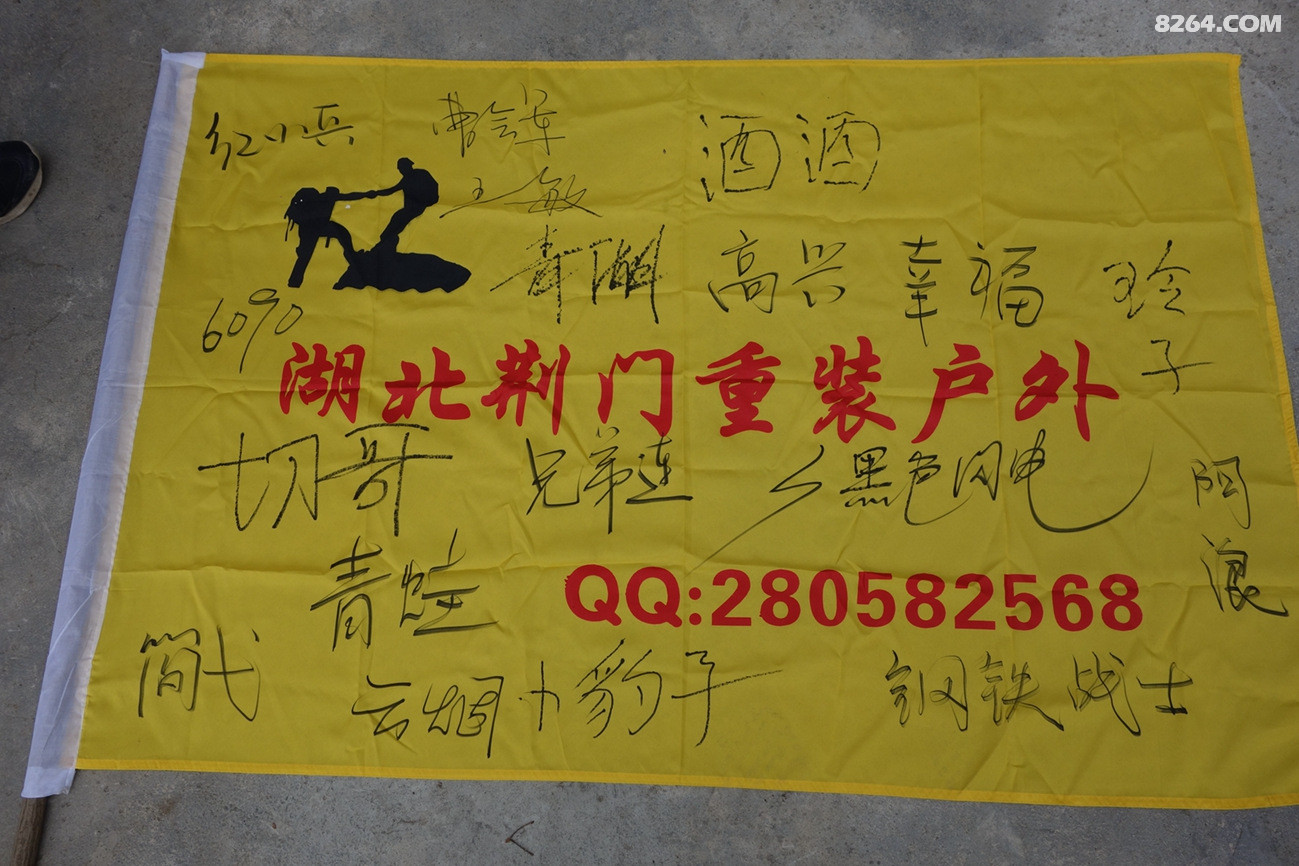 8264.COM
红小兵
酒酒
王敏
高兴
幸福
玲子
6090
湖北荆门重装户外
切哥
兄弟连
黑色闪电
阿浪
青蛙
QQ:280582568
云烟
小豹子
钢铁战士